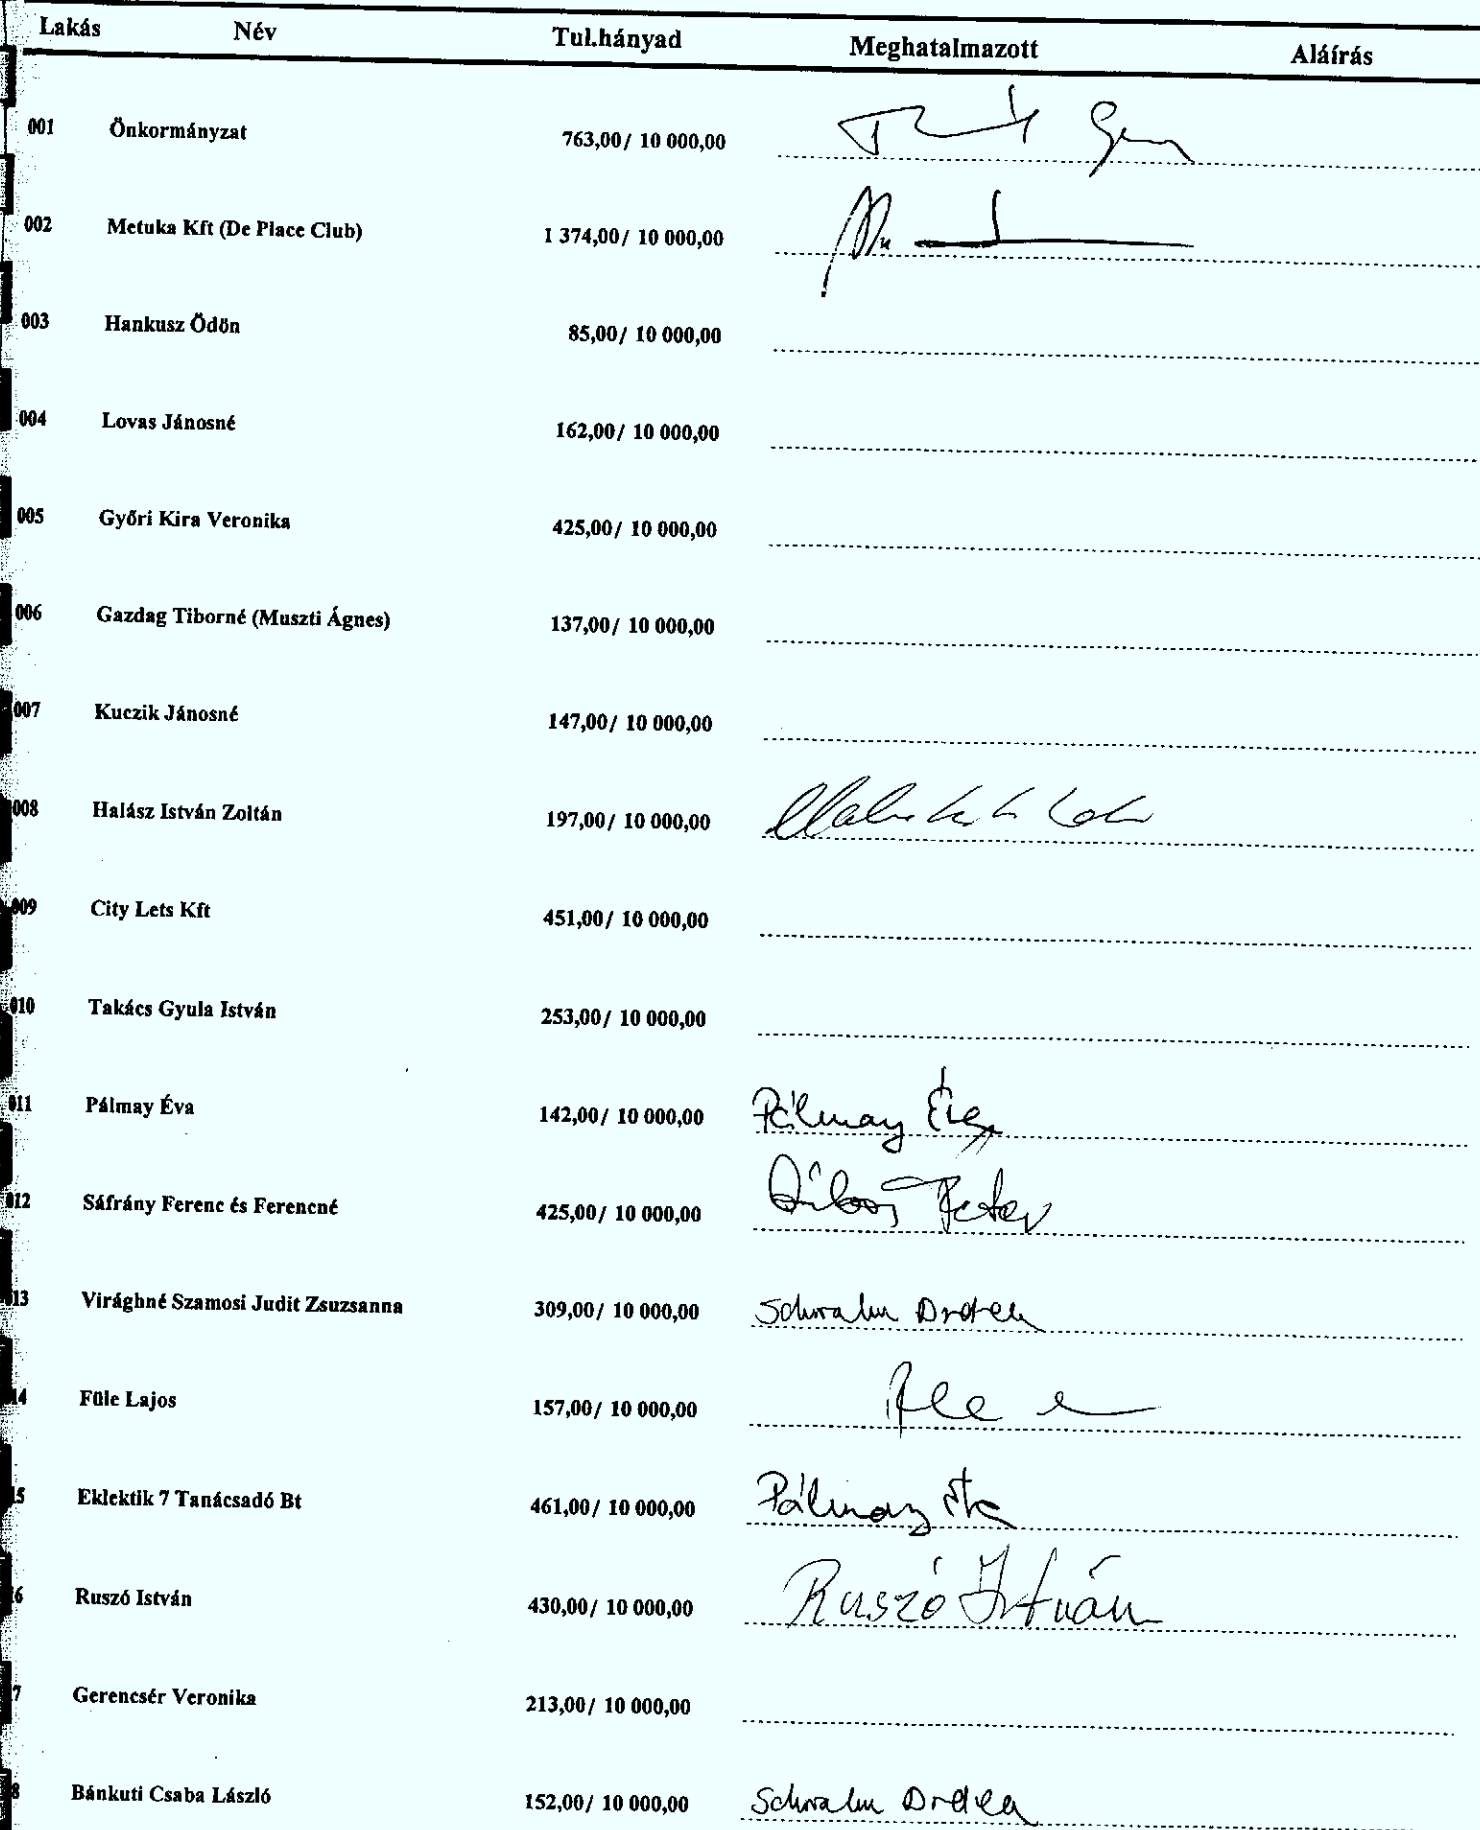 Lakás Név Tul.hányad Meghatalmazott Aláírás
001 Önkormányzat 763,00/ 10 000,00
002 Metuka Kft (De Place Club) 1 374,00/ 10 000,00
003 Hankusz Ödön 85,00/ 10 000,00
004 Lovas Jánosné 162,00/ 10 000,00
005 Győri Kira Veronika 425,00/ 10 000,00
006 Gazdag Tiborné (Muszti Ágnes) 137,00/ 10 000,00
007 Kuczik Jánosné 147,00/ 10 000,00
008 Halász István Zoltán 197,00/ 10 000,00
009 City Lets Kft 451,00/ 10 000,00
010 Takács Gyula István 253,00/ 10 000,00
011 Pálmay Éva 142,00/ 10 000,00 Pálmay Éva
012 Sáfrány Ferenc és Ferencné 425,00/ 10 000,00 Péter
13 Virághné Szamosi Judit Zsuzsanna 309,00/ 10 000,00
14 Füle Lajos 157,00/ 10 000,00
5 Eklektik 7 Tanácsadó Bt 461,00/ 10 000,00 Pálmay Éva
6 Ruszó István 430,00/ 10 000,00 Ruszó István
7 Gerencsér Veronika 213,00/ 10 000,00
8 Bánkuti Csaba László 152,00/ 10 000,00